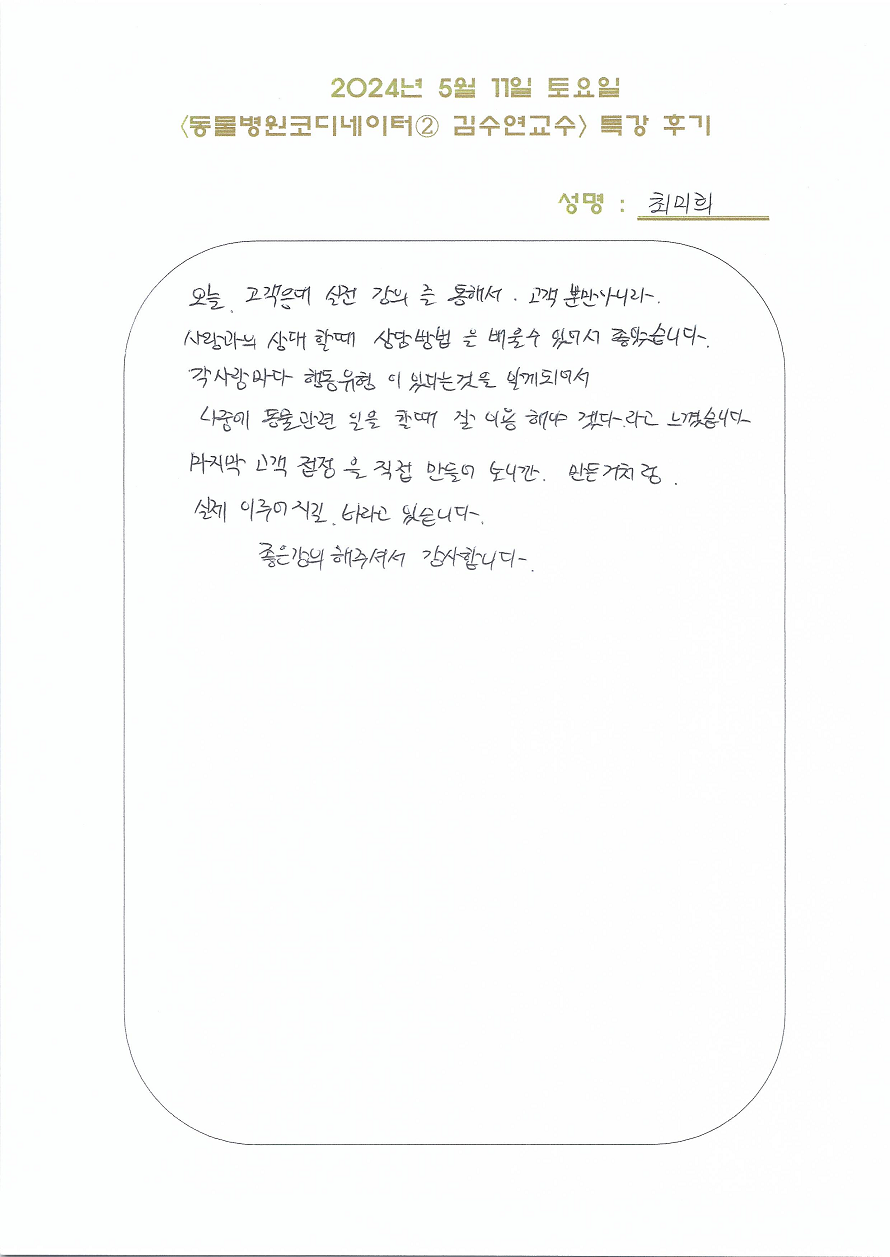 2024년 5월 11일 토요일
<동물병원코디네이터② 김수연교수> 특강 후기
성명 : 최미희
오늘, 고객응대 실전 강의 를 통해서. 고객 뿐만아니라.
사람과의 상대 할때 상담방법 을 배울수 있어서 좋았습니다.
각사람마다 행동유형 이 있다는것을 알게되어서
나중에 동물관련 일을 할때 잘 이용 해야 겠다라고 느꼈습니다
마지막 고객 접점 을 직접 만들어 보니깐. 만든거처럼.
실제 이루어지길. 바라고 있습니다.
좋은강의 해주셔서 감사합니다.